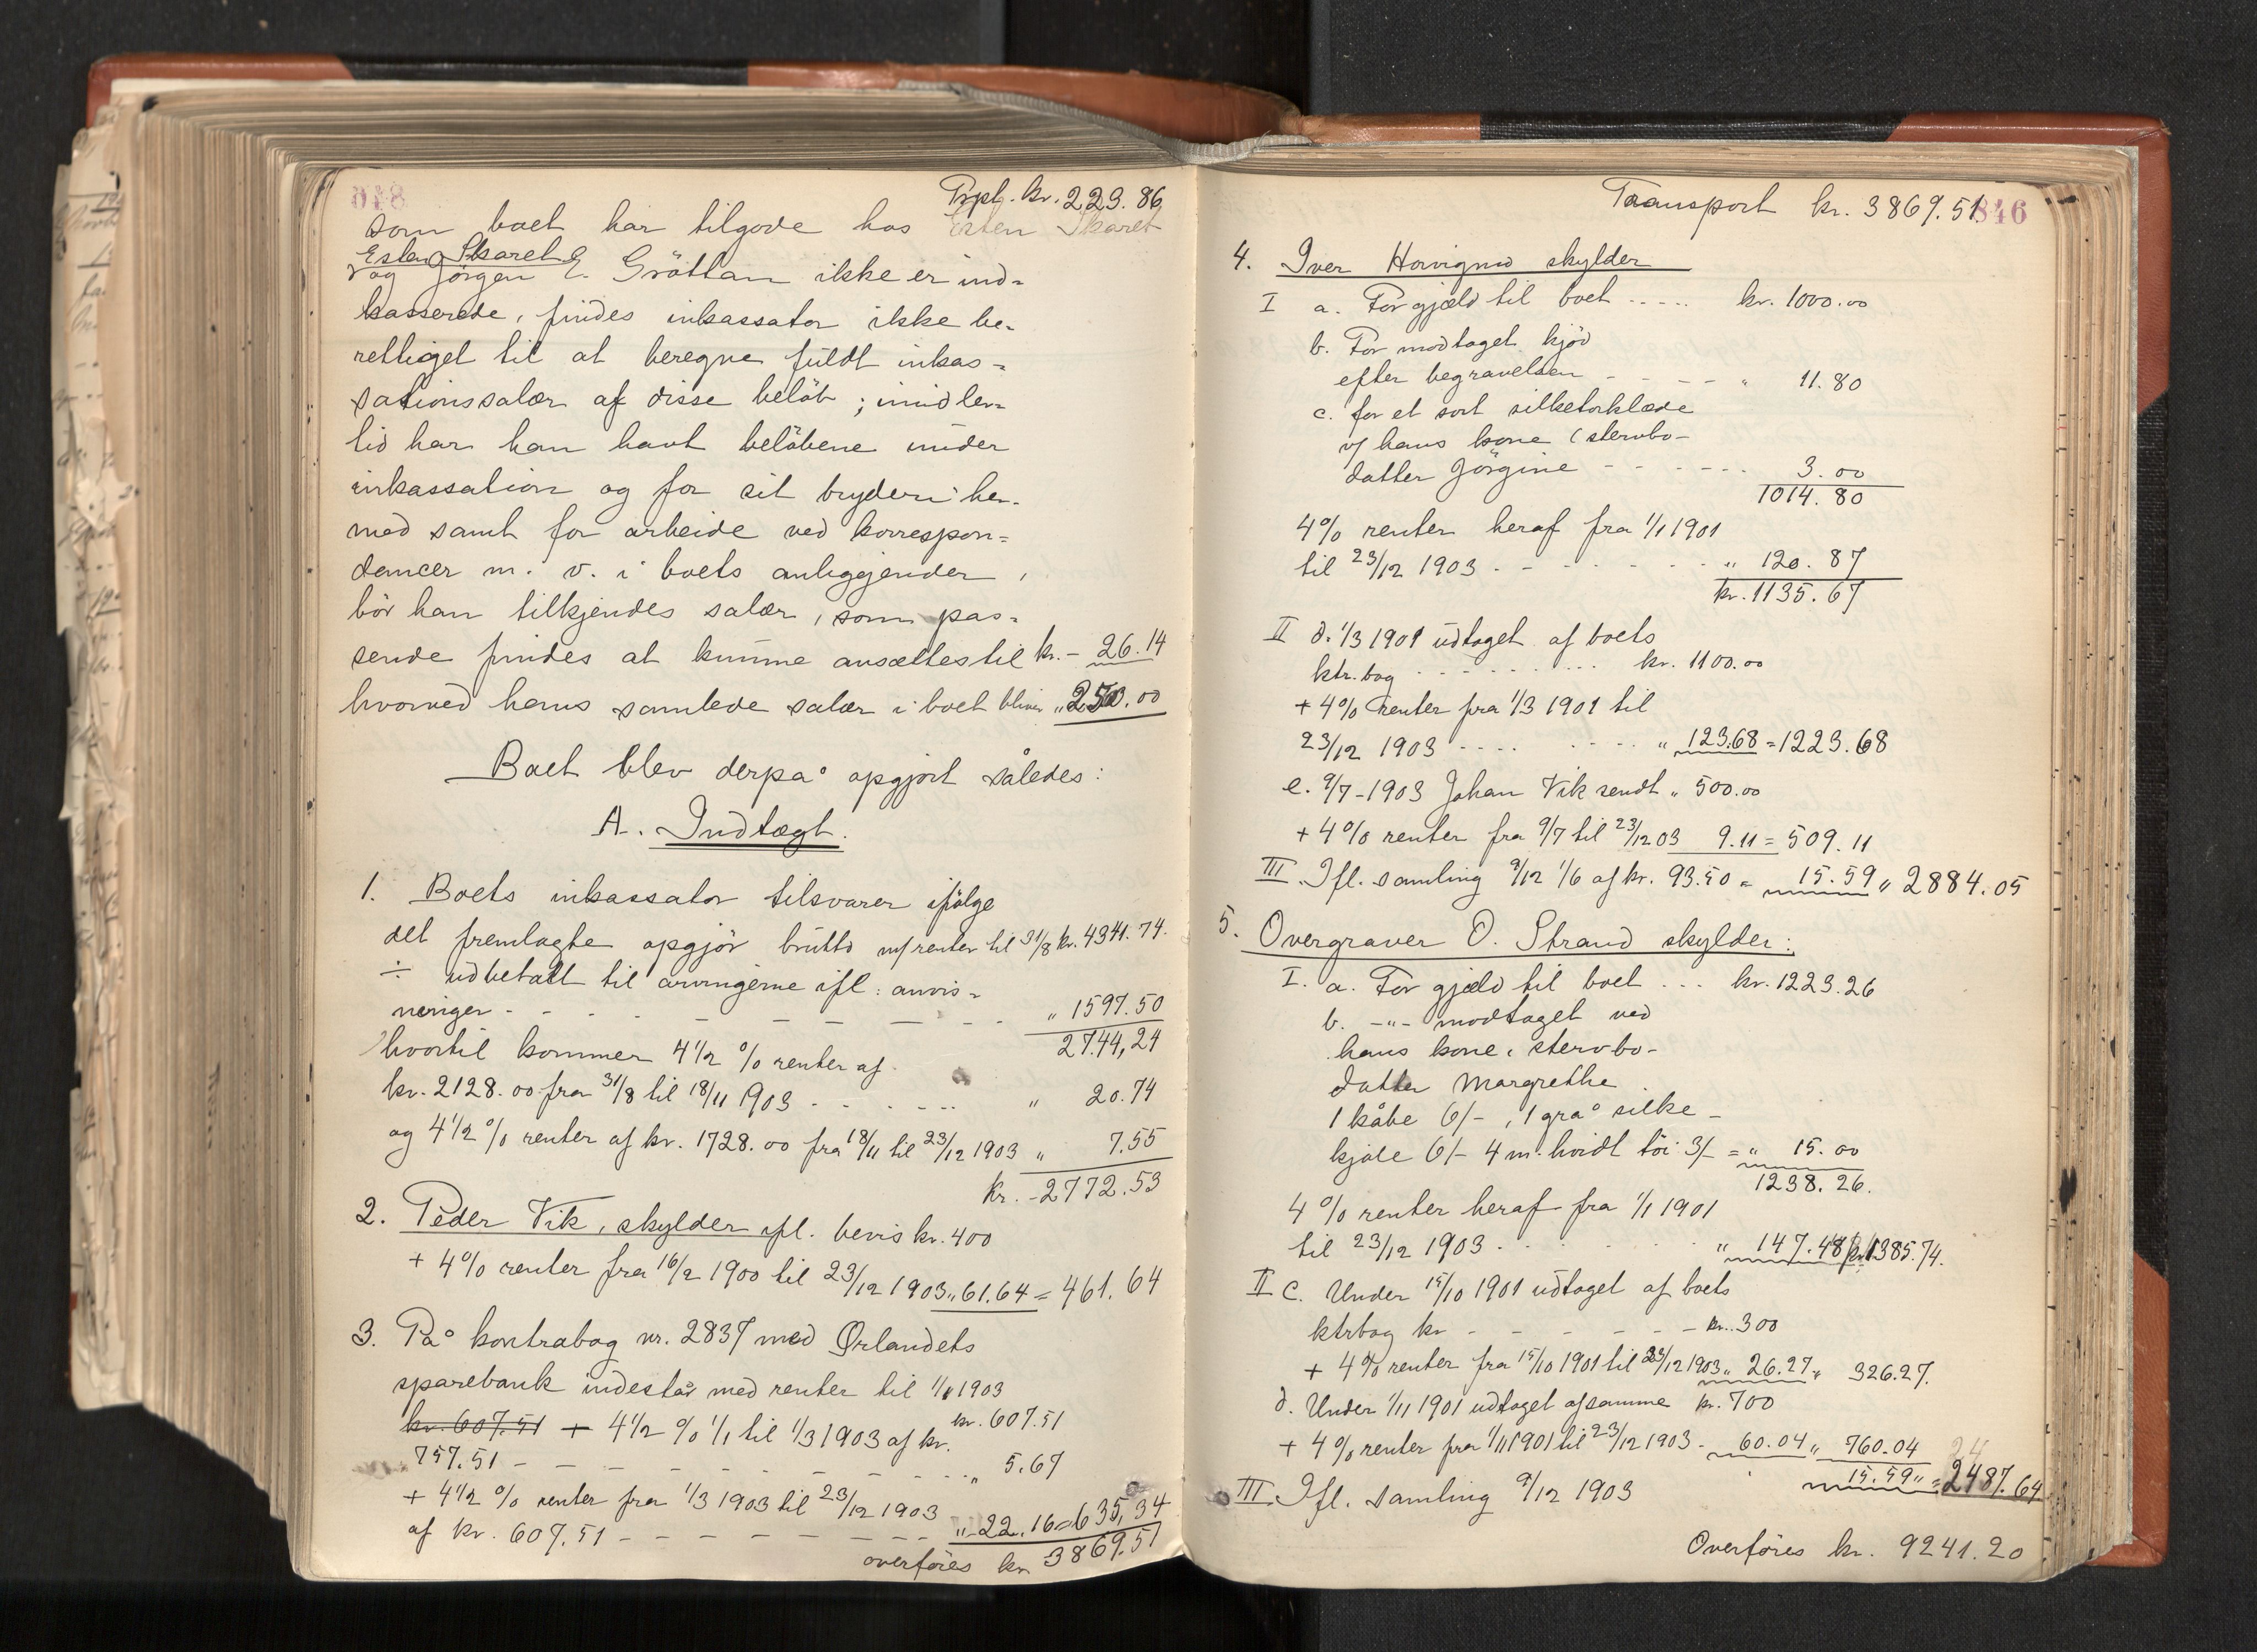 Trspt. kr. 223.86
som boet har tilgode hos Esten Skaret
Esten Skaret
og Jörgen E. Gröttan ikke er ind-
kasserede, findes inkassator ikke be-
rettiget til at beregne fuldt inkas-
sationssalær af disse beløb; imidler-
tid har han havt beløbene under
inkassation og for sit bryderi her-
med samt for arbeide ved korrespon-
dancer m. v. i boets anliggender,
bör han tilkjendes salær, som pas-
sende findes at kunne ansættes til kr. - 26.14
hvorved hans samlede salær i boet bliver „ 250.00
Boet blev derpå opgjort således:
A. Indtægt.
1. Boets inkassator tilsvarer ifölge
det fremlagte opgjör brutto m/renter til 31/8 kr. 4341.74.
÷ udbetalt til arvingerne ifl: anvis-
ninger - - - - - - - „ 1597.50
2744,24
hvortil kommer 4 1/2 % renter af
kr. 2128.00 fra 31/8 til 18/11 1903 - - - „ 20.74
og 4 1/2 % renter af kr. 1728.00 fra 18/11 til 23/12 1903 „ 7.55
kr. - 2772.53
2. Peder Vik, skylder ifl. bevis kr. 400
+ 4% renter fra 16/2 1900 til 23/12 1903 „ 61.64 = 461.64
3. På kontrabog nr. 2837 med Ørlandets
sparebank indestår med renter til 1/1 1903
kr. 607.51
kr. 607.51 + 4 1/2 % 1/1 til 1/3 1903 af kr.
757.51 - - - - - - - „ 5.67
+ 4 1/2 % renter fra 1/3 1903 til 23/12 1903
af kr. 607.51 - - - - - - „ 22.16 = 635,34
overföres kr 3869.51
Transport kr. 3869.51
846
4. Iver Hovignd skylder
I a. For gjæld til boet ..... kr. 1000.00
b. For modtaget kjöd
efter begravelsen - - - - „ 11.80
c. for et sort silketørklæde
v/ hans kone (stervbo-
datter Jörgine - - - - - 3.00
1014.80
4% renter heraf fra 1/1 1901
til 23/12 1903 . - - - - - „ 120.87
kr. 1135.67
II d. 1/3 1901 udtaget af boets
ktr.bog . . . . . . kr. 1100.00
+ 4% renter fra 1/3 1901 til
23/12 1903 - - - - „ 123.68 = 1223.68
e. 9/7 - 1903 Johan Vik sendt „ 500.00
+ 4% renter fra 9/7 til 23/12 03 9.11 = 509.11
III. Ifl. samling 9/12 1/6 af kr. 93.50 = 15.59 „ 2884.05
5. Overgraver O. Strand skylder:
I. a. For gjæld til boet ... kr. 1223.26
b. -„- modtaget ved
hans kone, stervbo-
datter Margrethe
1 kåbe 6/-, 1 grå silke-
kjole 6/- 4 m. hvidt töi 3/- = „ 15.00
1238.26.
4% renter heraf fra 1/1 1901
til 23/12 1903 . . . . . „ 147.48 kr. 1385.74.
II c. Under 15/10 1901 udtaget af boets
ktrbog kr - - - - - - kr. 300
+ 4% renter fra 15/10 1901 til 23/12 1903 „ 26.27 „ 326.27.
d. Under 1/11 1901 udtaget af samme kr. 700
+ 4% renter fra 1/11 1901 til 23/12 1903 - 60.04 „ 760.04
III. Ifl. samling 9/12 1903 15.59 „ = 2487.64
Overföres kr. 9241.20